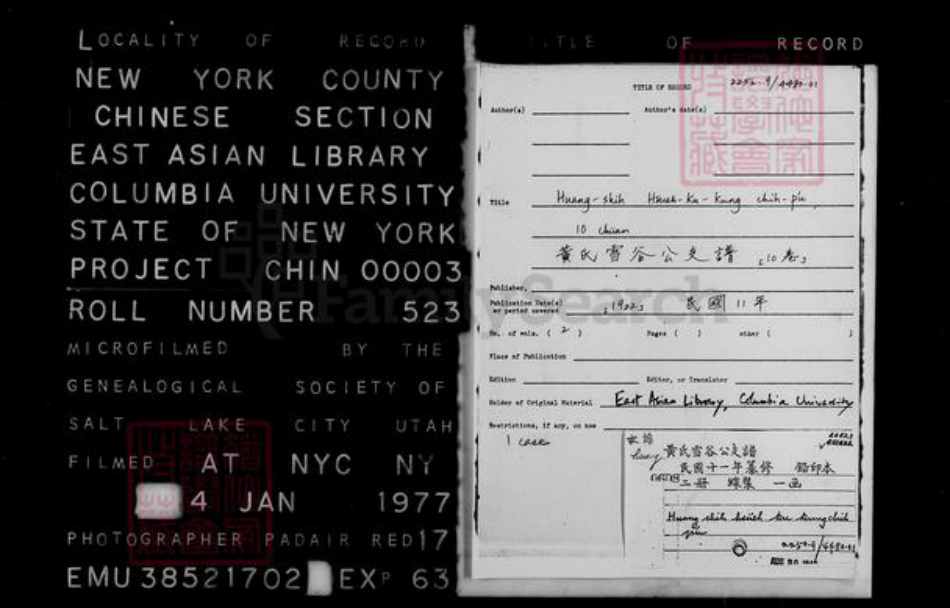 LOCALITY OF RECORD
NEW YORK COUNTY
CHINESE SECTION
EAST ASIAN LIBRARY
COLUMBIA UNIVERSITY
STATE OF NEW YORK
PROJECT CHIN 00003
ROLL NUMBER 523
MICROFILMED BY THE
GENEALOGICAL SOCIETY OF
SALT LAKE CITY UTAH
FILMED AT NYC NY
4 JAN 1977
PHOTOGRAPHER PADAIR RED 17
EMU 38521702 EXP 63
TITLE OF RECORD
TITLE OF RECORD
Author(s) Author's date(s)
Title Huang-shih Hsueh-Ku-Kung chih-p'u
10 chüan
黃氏雪谷公支譜 10卷
Publisher,
Publication Date(s) or period covered 1922 民國11年
No. of vols. ( 2 ) Pages ( ) other ( )
Place of Publication
Edition Editor, or Translator
Holder of Original Material East Asian Library, Columbia University
Restrictions, if any, on use
1 case
黃氏雪谷公支譜
民國十一年纂修 鉛印本
二冊 線裝 一函
FamilySearch